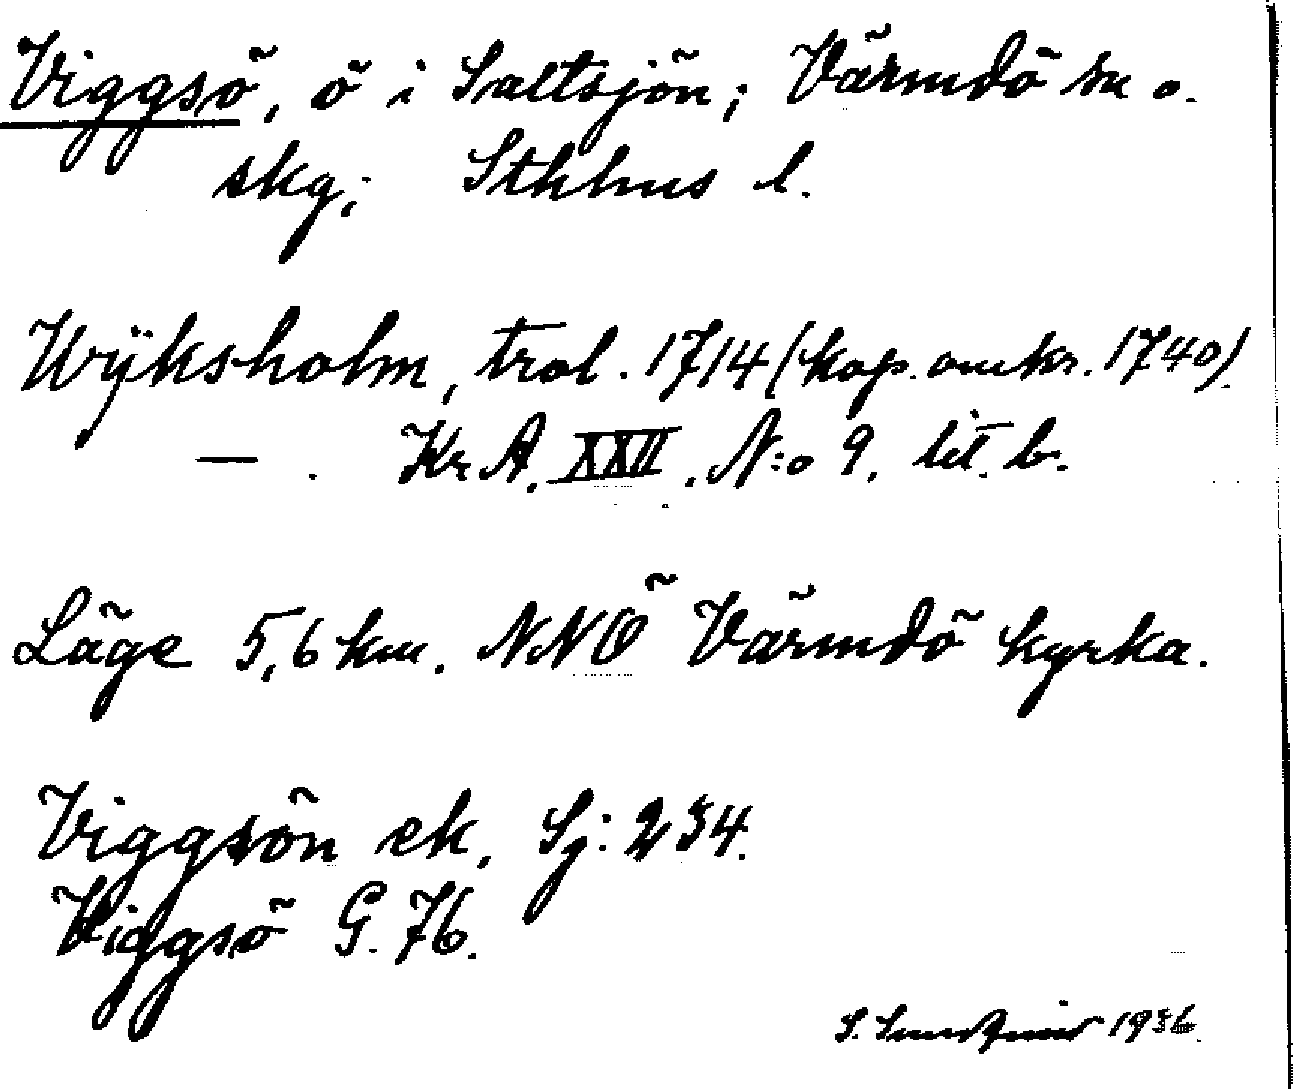 Viggsö, ö i Saltsjön; Värmdö sn o.
skg; Sthlms l.
Wÿksholm, trol. 1714 (kop. omkr. 1740)
— . Kr A. XXII. N:o 9. lit. b.
Läge 5,6 km. NNÖ Värmdö kyrka.
Viggsön ek. Sj: 234.
Viggsö G. 76.
S. 1936.